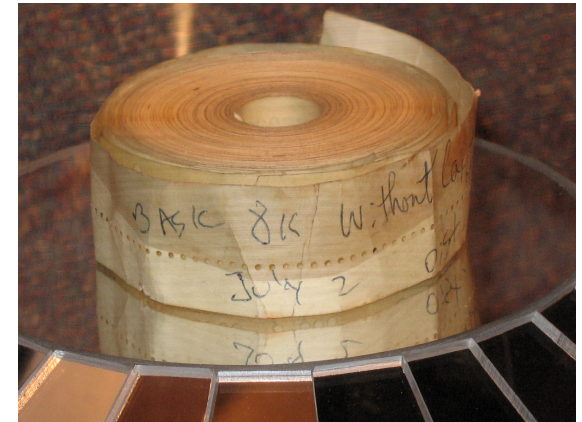 BASIC 8K Without
July 2